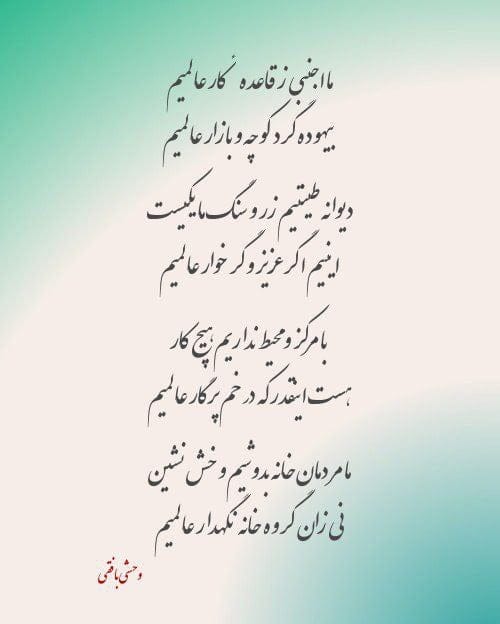 ما اجنبی ز قاعدهٔ کار عالمیم
بیهوده گرد کوچه و بازار عالمیم
دیوانه طینتیم زر و سنگ ما یکیست
اینیم اگر عزیز و گر خوار عالمیم
با مرکز و محیط نداریم هیچ کار
هست اینقدر که در خم پرگار عالمیم
ما مردمان خانه بدوشیم و خش نشین
نی زان گروه خانه نگهدار عالمیم
وحشی بافقی